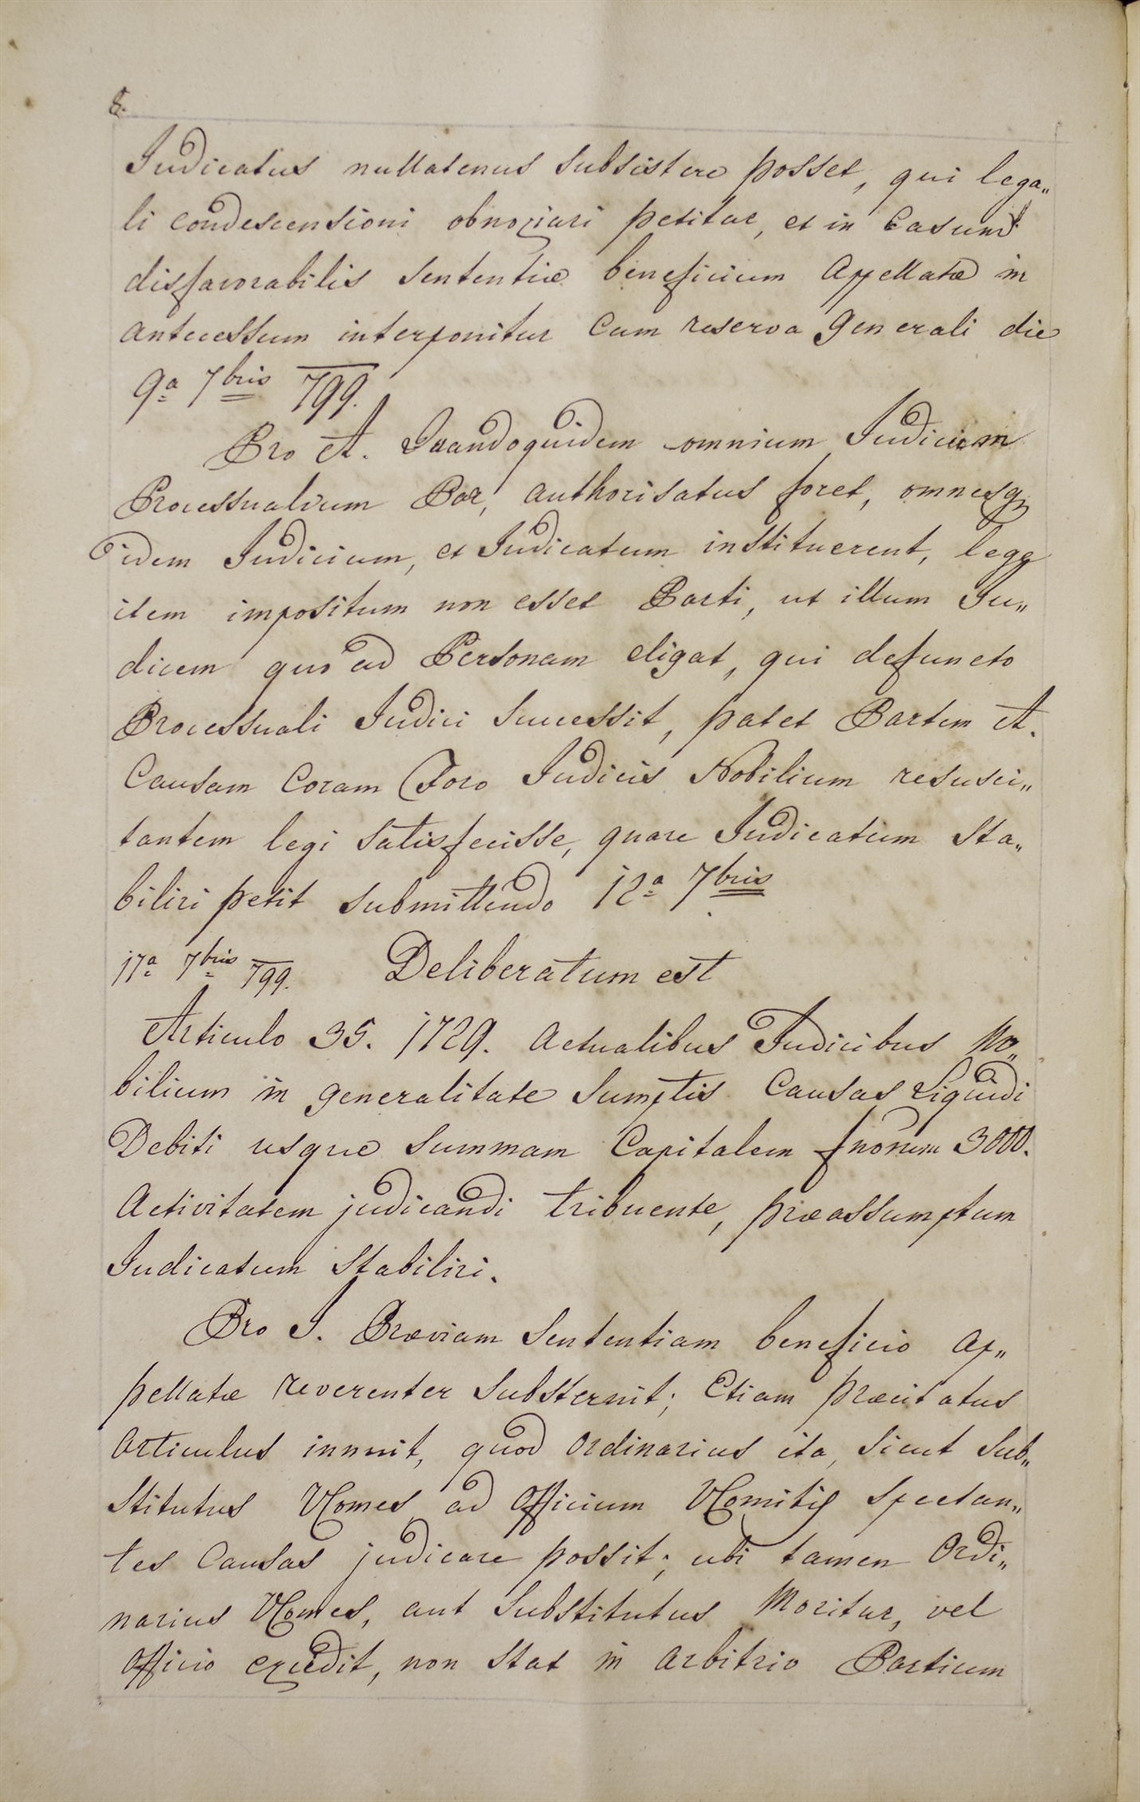 8.
Judicatus nullatenus subsistere posset, qui lega„
li condescensioni obnoxiari petitur, et in Casum
disfavorabilis Sententiæ beneficium Appellatæ in
antecessum interponitur Cum reserva Generali die
9ª 7bris 799.
Pro A. Quandoquidem omnium Judicum
Processualium Par, authorisatus foret, omnesq
idem Judicium, et Judicatum instituerent, lege
item impositum non esset Parti, ut illum Ju„
dicem quo ad Personam eligat, qui defuncto
Processuali Judici Successit, patet Partem A.
Causam Coram Foro Judicis Nobilium resusci„
tantem legi satisfecisse, quare Judicatum sta„
biliri petit submittendo 12ª 7bris
17ª 7bris 799. Deliberatum est
Articulo 35. 1729. Actualibus Judicibus No„
bilium in generalitate Sumptis Causas Liquidi
Debiti usque Summam Capitalem fnorum 3000.
Activitatem judicandi tribuente, præassumptum
Judicatum Stabiliri.
Pro I. Præviam Sententiam beneficio Ap„
pellatæ reverenter Substernit; Etiam præcitatus
Articulus innuit, quod Ordinarius ita, sicut Sub„
stitutus VComes ad Officium VComitis spectan„
tes Causas judicare possit; ubi tamen Ordi„
narius VComes, aut Substitutus Moritur, vel
Officio excedit, non stat in arbitrio Partium